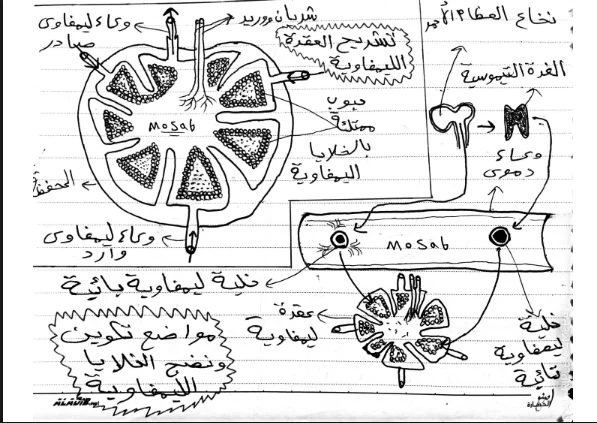 وعاء ليمفاوى
صادر
شريان ووريد
تشريح العقدة
الليمفاوية
جيوب
ممتلئة
بالخلايا
الليمفاوية
MoSab
المحفظة
وعاء ليمفاوى
وارد
نخاع العظام الأحمر
الغدة التيموسية
وعاء
دموى
MoSab
خلية ليمفاوية بائية
عقدة
ليمفاوية
خلية
ليمفاوية
تائية
مواضع تكوين
ونضج الخلايا
الليمفاوية